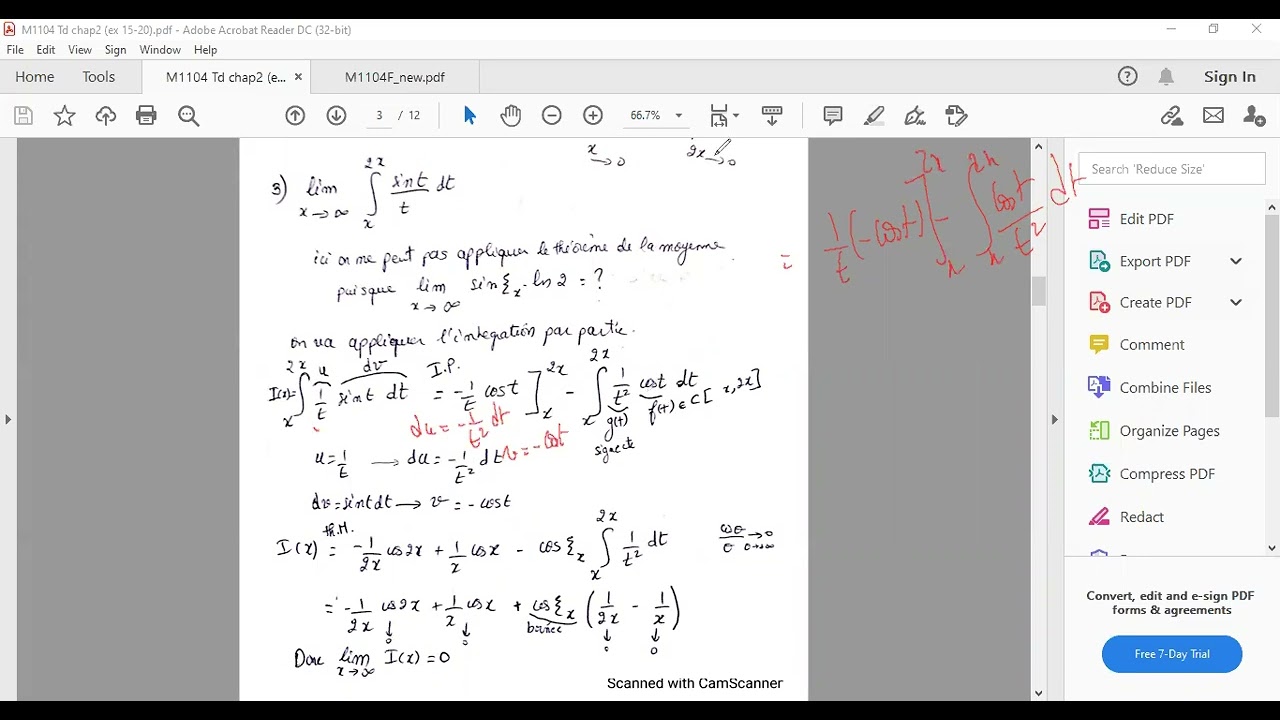 M1104 Td chap2 (ex 15-20).pdf - Adobe Acrobat Reader DC (32-bit)
File Edit View Sign Window Help
Home Tools M1104 Td chap2 (e... × M1104F_new.pdf Sign In
3 / 12 66.7%
x→0 2x→0
3) lim x→∞ ∫_x^{2x} sint/t dt
ici on ne peut pas appliquer le théorème de la moyenne
puisque lim x→∞ sin ξ_x · ln 2 = ?
on va appliquer l'intégration par partie.
I(x)= ∫_x^{2x} 1/t sint dt = -1/t cost ]_x^{2x} - ∫_x^{2x} 1/t² cost dt
u dv I.P.
g(t) f(t) ∈ C[x,2x]
signe cte
du = -1/t² dt v = -cost
u = 1/t → du = -1/t² dt
dv = sint dt → v = -cost
th.H.
I(x) = -1/2x cos2x + 1/x cosx - cos ξ_x ∫_x^{2x} 1/t² dt
cosθ/θ →0 θ→∞
= -1/2x cos2x + 1/x cosx + cos ξ_x (1/2x - 1/x)
↓0 ↓0 bornée ↓0 ↓0
Donc lim x→∞ I(x) = 0
Scanned with CamScanner
= 1/t (-cost) ]_x^{2x} - ∫_x^{2x} cost/t² dt
Search 'Reduce Size'
Edit PDF
Export PDF
Create PDF
Comment
Combine Files
Organize Pages
Compress PDF
Redact
Convert, edit and e-sign PDF
forms & agreements
Free 7-Day Trial